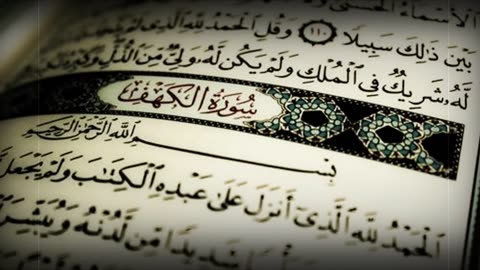 الأسماء الحسنى
بين ذلك سبيلا ١١٠ وقل الحمد لله الذى
له شريك فى الملك ولم يكن له ولى من الذل وكبره
سورة الكهف
بسم الله الرحمن الرحيم
الحمد لله الذى أنزل على عبده الكتب ولم يجعل
شديدا من لدنه ويبشر